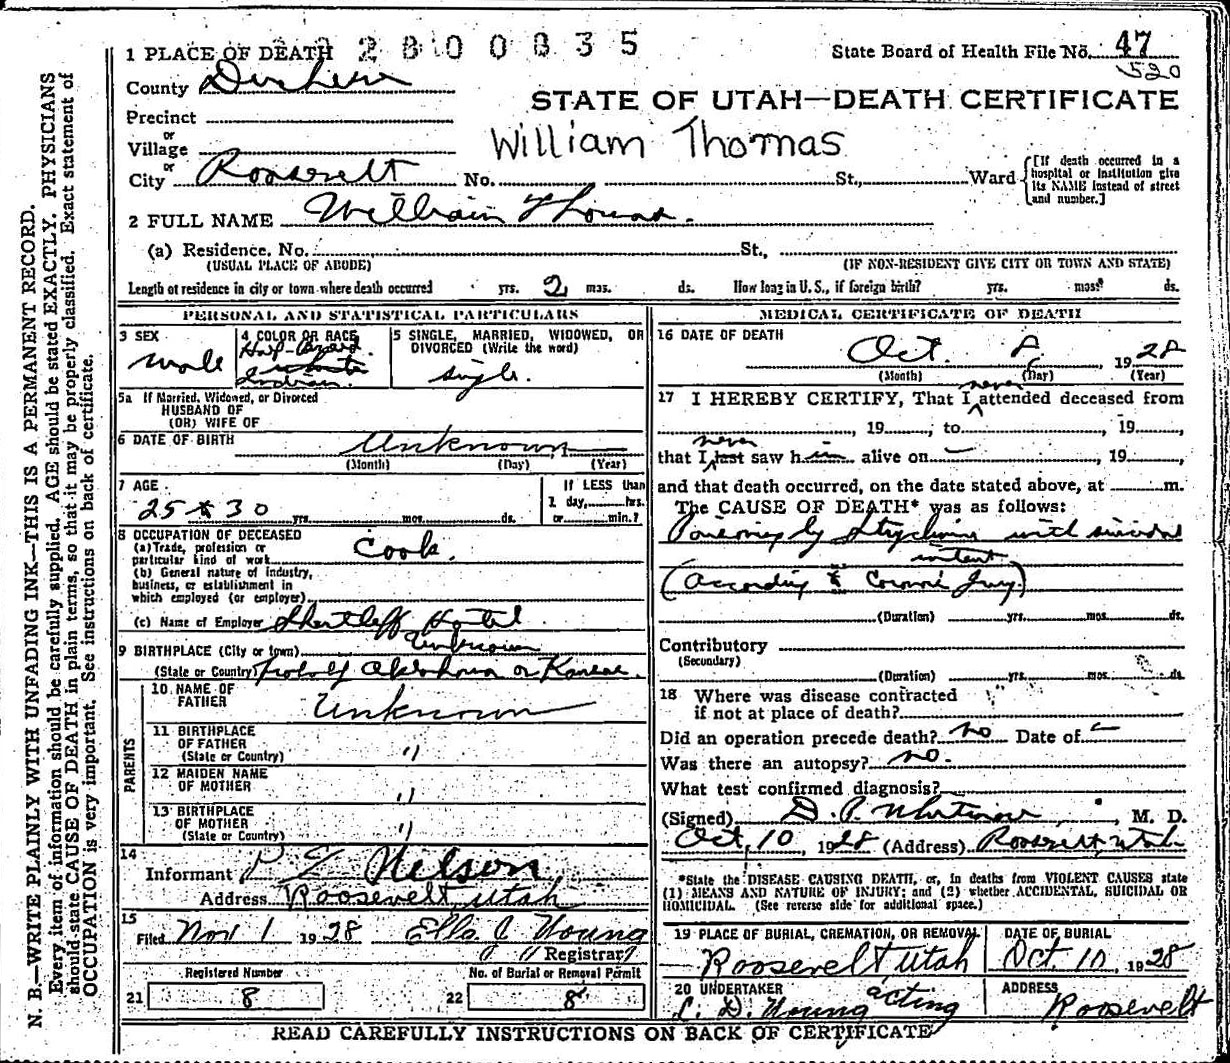 1 PLACE OF DEATH 2800035
State Board of Health File No. 47
520
County Duchesne
STATE OF UTAH—DEATH CERTIFICATE
Precinct
or
Village
William Thomas
or
City Roosevelt No. St., Ward
[If death occurred in a
hospital or institution give
its NAME instead of street
and number.]
2 FULL NAME William Thomas.
(a) Residence. No. St.,
(USUAL PLACE OF ABODE) (IF NON-RESIDENT GIVE CITY OR TOWN AND STATE)
Length of residence in city or town where death occurred yrs. 2 mos. ds. How long in U. S., if foreign birth? yrs. mos. ds.
PERSONAL AND STATISTICAL PARTICULARS
3 SEX
male
4 COLOR OR RACE
Half-
white
Indian.
5 SINGLE, MARRIED, WIDOWED, OR
DIVORCED (Write the word)
single.
5a If Married, Widowed, or Divorced
HUSBAND OF
(OR) WIFE OF
6 DATE OF BIRTH Unknown
(Month) (Day) (Year)
7 AGE
25 to 30 yrs. mos. ds.
If LESS than
1 day, hrs.
or min.?
8 OCCUPATION OF DECEASED
(a) Trade, profession or
particular kind of work Cook.
(b) General nature of industry,
business, or establishment in
which employed (or employer)
(c) Name of Employer Shertleff Hotel
9 BIRTHPLACE (City or town) Unknown
(State or Country) Probably Oklahoma or Kansas.
PARENTS
10 NAME OF
FATHER Unknown
11 BIRTHPLACE
OF FATHER
(State or Country) "
12 MAIDEN NAME
OF MOTHER "
13 BIRTHPLACE
OF MOTHER
(State or Country) "
14
Informant Nelson
Address Roosevelt, Utah
15
Filed Nov 1 1928 Ella J Young
Registrar
Registered Number
21 8
No. of Burial or Removal Permit
22 8
MEDICAL CERTIFICATE OF DEATH
16 DATE OF DEATH
Oct. 8, 1928
(Month) (Day) (Year)
never
17 I HEREBY CERTIFY, That I attended deceased from
, 19 , to , 19 ,
never
that I last saw h im alive on — , 19 ,
and that death occurred, on the date stated above, at m.
The CAUSE OF DEATH* was as follows:
Poisoning by Strychnine with suicidal
intent
(According to Coroners Jury)
(Duration) yrs. mos. ds.
Contributory
(Secondary)
(Duration) yrs. mos. ds.
18 Where was disease contracted
if not at place of death?
Did an operation precede death? no Date of —
Was there an autopsy? no.
What test confirmed diagnosis?
(Signed) D. P. Whitmore, M. D.
Oct, 10, 1928 (Address) Roosevelt, Utah
*State the DISEASE CAUSING DEATH, or, in deaths from VIOLENT CAUSES state
(1) MEANS AND NATURE OF INJURY; and (2) whether ACCIDENTAL, SUICIDAL OR
HOMICIDAL. (See reverse side for additional space.)
19 PLACE OF BURIAL, CREMATION, OR REMOVAL
Roosevelt Utah
DATE OF BURIAL
Oct. 10, 1928
20 UNDERTAKER
L. D. Young acting
ADDRESS
Roosevelt
READ CAREFULLY INSTRUCTIONS ON BACK OF CERTIFICATE
N. B.—WRITE PLAINLY WITH UNFADING INK—THIS IS A PERMANENT RECORD.
Every item of information should be carefully supplied. AGE should be stated EXACTLY. PHYSICIANS
should state CAUSE OF DEATH in plain terms, so that it may be properly classified. Exact statement of
OCCUPATION is very important. See instructions on back of certificate.